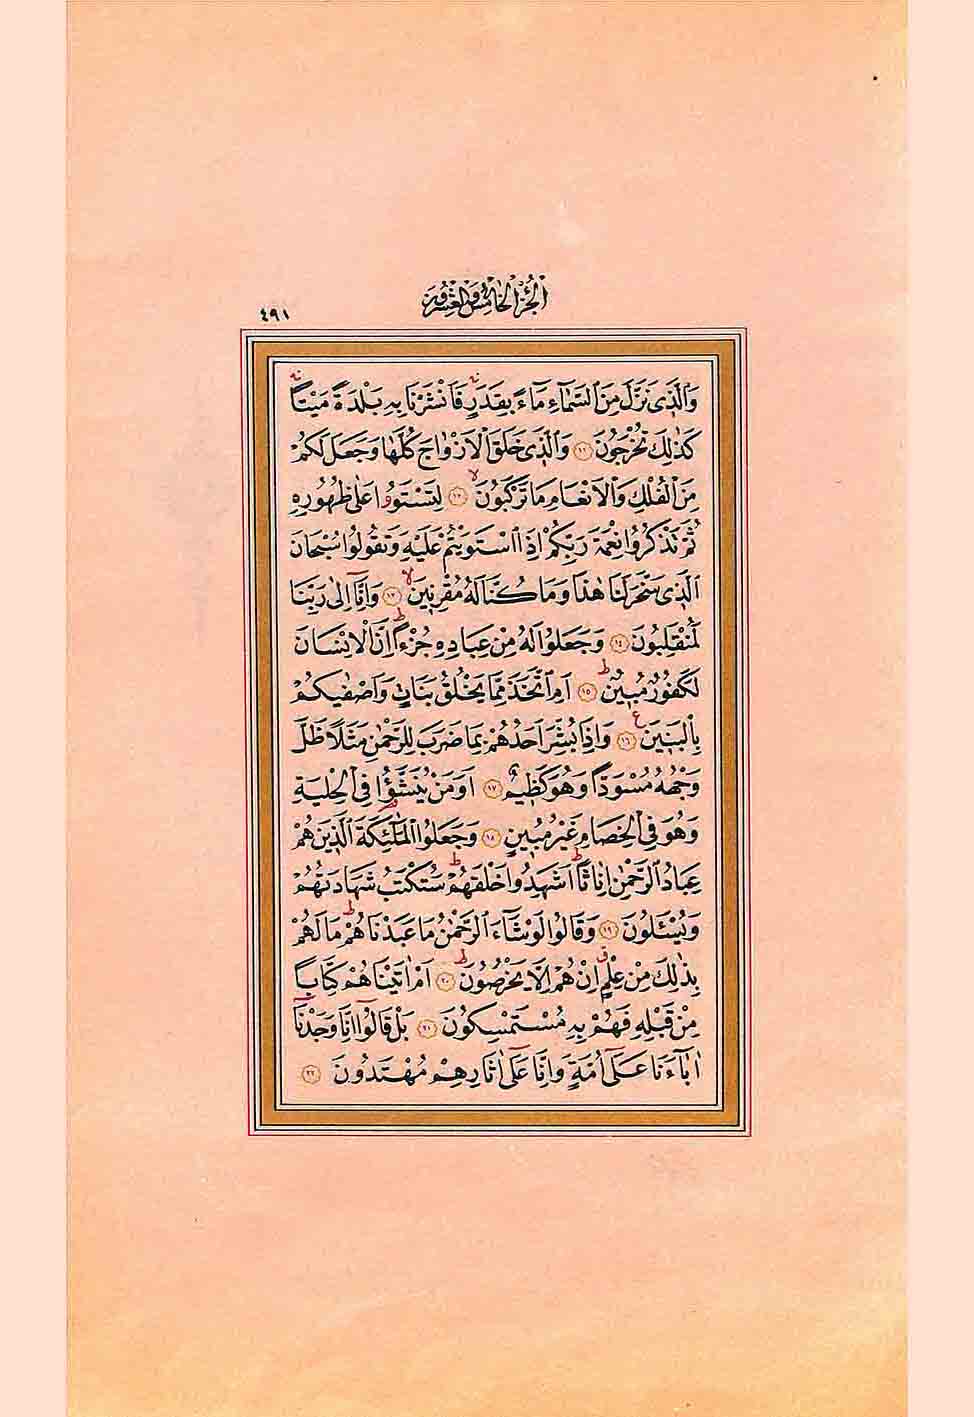 الجزء الخامس والعشرون
٤٩١
وَالَّذ۪ي نَزَّلَ مِنَ السَّمَٓاءِ مَٓاءً بِقَدَرٍۚ فَاَنْشَرْنَا بِه۪ بَلْدَةً مَيْتًاۚ
كَذٰلِكَ تُخْرَجُونَ ﴿١١﴾ وَالَّذ۪ي خَلَقَ الْاَزْوَاجَ كُلَّهَا وَجَعَلَ لَكُمْ
مِنَ الْفُلْكِ وَالْاَنْعَامِ مَا تَرْكَبُونَۙ ﴿١٢﴾ لِتَسْتَوُ۫ا عَلٰى ظُهُورِه۪
ثُمَّ تَذْكُرُوا نِعْمَةَ رَبِّكُمْ اِذَا اسْتَوَيْتُمْ عَلَيْهِ وَتَقُولُوا سُبْحَانَ
الَّذ۪ي سَخَّرَ لَنَا هٰذَا وَمَا كُنَّا لَهُ مُقْرِن۪ينَۙ ﴿١٣﴾ وَاِنَّٓا اِلٰى رَبِّنَا
لَمُنْقَلِبُونَ ﴿١٤﴾ وَجَعَلُوا لَهُ مِنْ عِبَادِه۪ جُزْءًاۜ اِنَّ الْاِنْسَانَ
لَكَفُورٌ مُب۪ينٌۜ ﴿١٥﴾ اَمِ اتَّخَذَ مِمَّا يَخْلُقُ بَنَاتٍ وَاَصْفٰيكُمْ
بِالْبَن۪ينَ ع ﴿١٦﴾ وَاِذَا بُشِّرَ اَحَدُهُمْ بِمَا ضَرَبَ لِلرَّحْمٰنِ مَثَلًا ظَلَّ
وَجْهُهُ مُسْوَدًّا وَهُوَ كَظ۪يمٌ ﴿١٧﴾ اَوَمَنْ يُنَشَّؤُ۬ا فِي الْحِلْيَةِ
وَهُوَ فِي الْخِصَامِ غَيْرُ مُب۪ينٍ ﴿١٨﴾ وَجَعَلُوا الْمَلٰٓئِكَةَ الَّذ۪ينَ هُمْ
عِبَادُ الرَّحْمٰنِ اِنَاثًاۜ اَشَهِدُوا خَلْقَهُمْۜ سَتُكْتَبُ شَهَادَتُهُمْ
وَيُسْـَٔلُونَ ﴿١٩﴾ وَقَالُوا لَوْ شَٓاءَ الرَّحْمٰنُ مَا عَبَدْنَاهُمْۜ مَا لَهُمْ
بِذٰلِكَ مِنْ عِلْمٍۗ اِنْ هُمْ اِلَّا يَخْرُصُونَۜ ﴿٢٠﴾ اَمْ اٰتَيْنَاهُمْ كِتَابًا
مِنْ قَبْلِه۪ فَهُمْ بِه۪ مُسْتَمْسِكُونَ ﴿٢١﴾ بَلْ قَالُٓوا اِنَّا وَجَدْنَٓا
اٰبَٓاءَنَا عَلٰٓى اُمَّةٍ وَاِنَّا عَلٰٓى اٰثَارِهِمْ مُهْتَدُونَ ﴿٢٢﴾